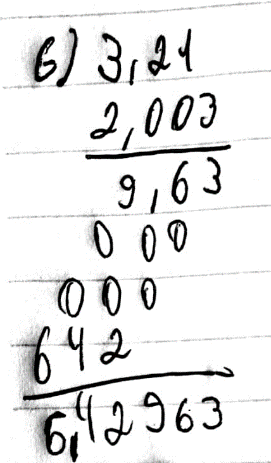 6) 3,21
2,003
9,63
0 0 0
0 0 0
6 4 2
6,42963